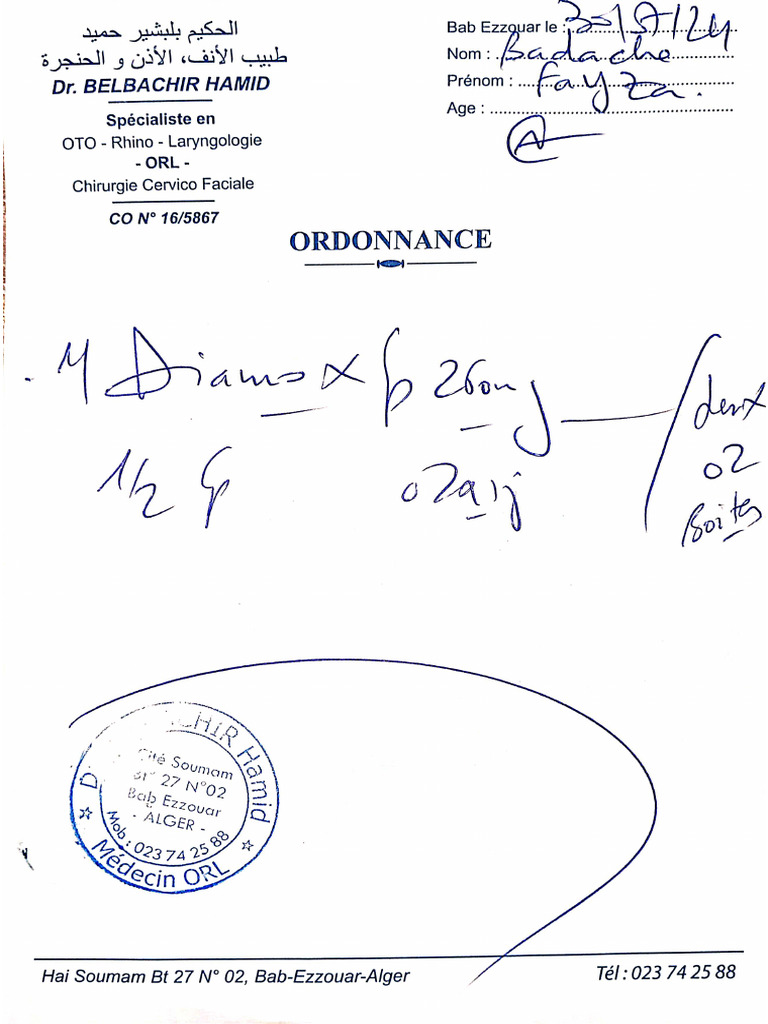 الحكيم بلبشير حميد
طبيب الأنف، الأذن و الحنجرة
Dr. BELBACHIR HAMID
Spécialiste en
OTO - Rhino - Laryngologie
- ORL -
Chirurgie Cervico Faciale
CO N° 16/5867
Bab Ezzouar le :
Nom : Badache
Prénom : Fayza.
Age :
ORDONNANCE
Diamox Cp 250mg
1/2 Cp
deux
02
Boites
CHIR Hamid
Cité Soumam
Bt° 27 N°02
Bab Ezzouar
- ALGER -
Mob : 023 74 25 88
Médecin ORL
Hai Soumam Bt 27 N° 02, Bab-Ezzouar-Alger
Tél : 023 74 25 88